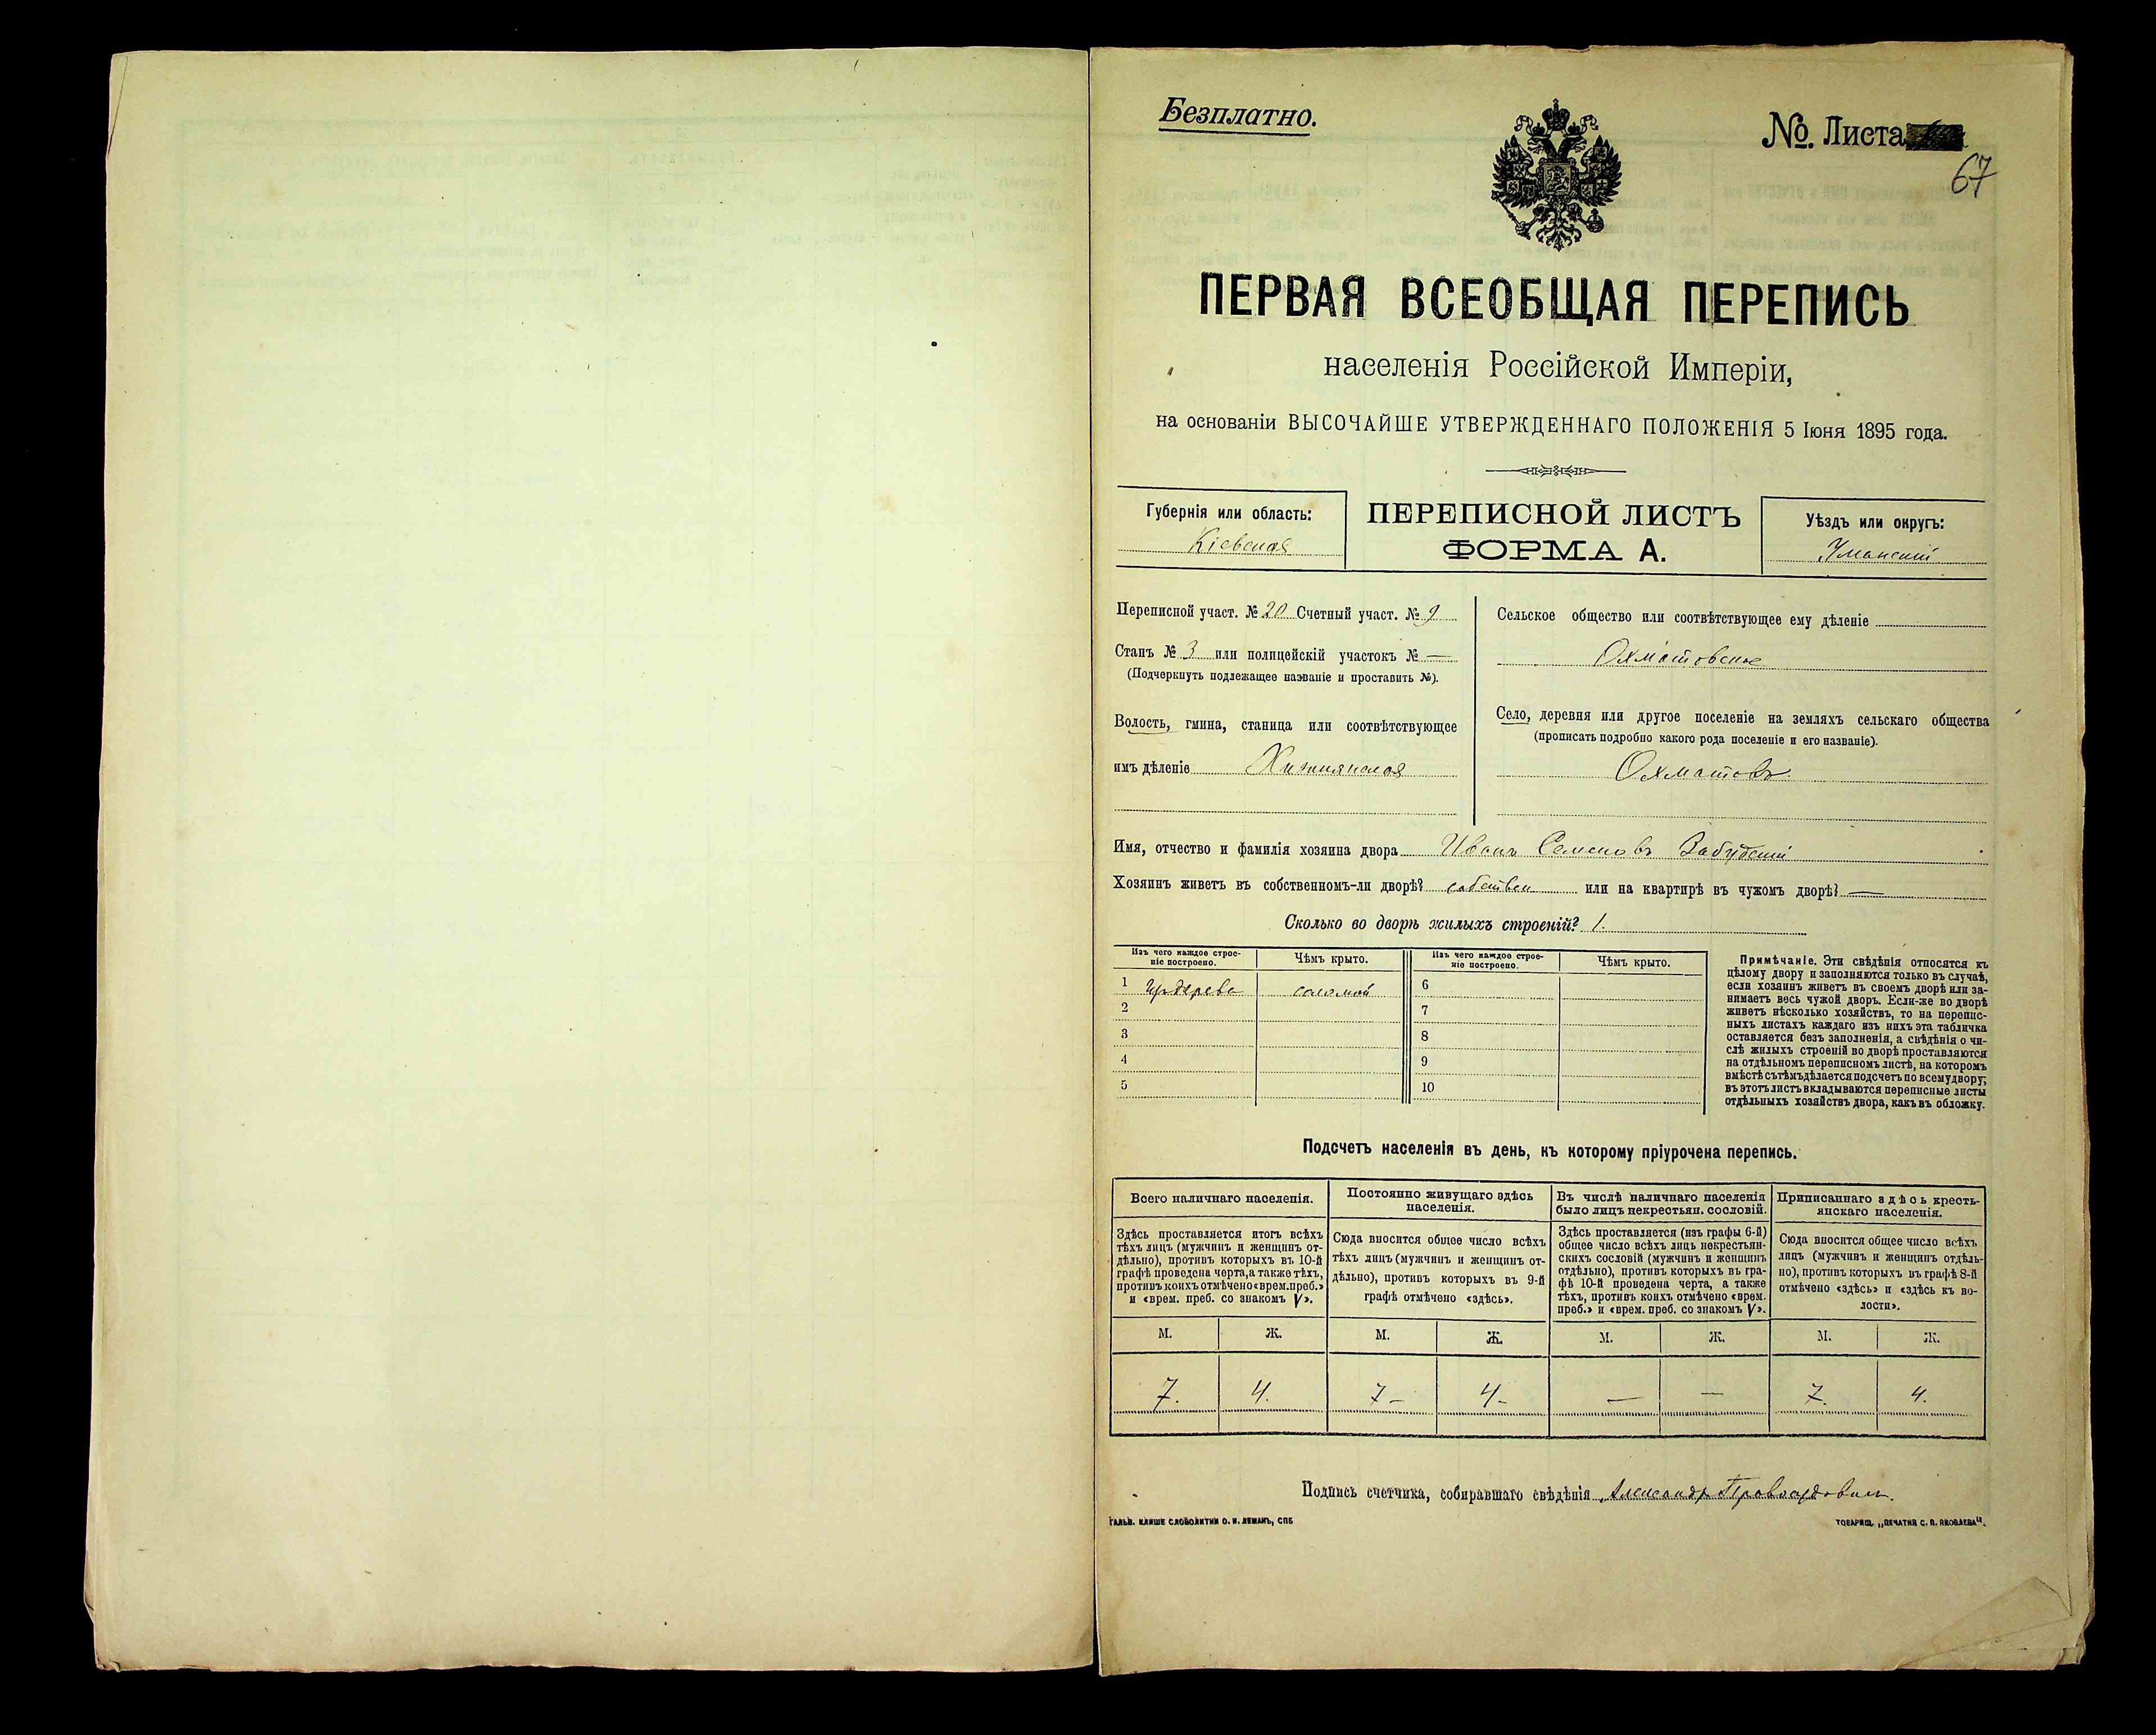 Безплатно.
№. Листа
67
ПЕРВАЯ ВСЕОБЩАЯ ПЕРЕПИСЬ
населенія Россійской Имперіи,
на основаніи ВЫСОЧАЙШЕ УТВЕРЖДЕННАГО ПОЛОЖЕНІЯ 5 Іюня 1895 года.
Губернія или область:
Кіевская
ПЕРЕПИСНОЙ ЛИСТЪ
ФОРМА А.
Уѣздъ или округъ:
Уманскій
Переписной участ. № 20 Счетный участ. № 9
Станъ № 3 или полицейскій участокъ № —
(Подчеркнуть подлежащее названіе и проставить №).
Волость, гмина, станица или соотвѣтствующее
имъ дѣленіе
Сельское общество или соотвѣтствующее ему дѣленіе
Охматовское
Село, деревня или другое поселеніе на земляхъ сельскаго общества
(прописать подробно какого рода поселеніе и его названіе).
Охматовъ
Имя, отчество и фамилія хозяина двора Иванъ Семеновъ
Хозяинъ живетъ въ собственномъ-ли дворѣ? собствен или на квартирѣ въ чужомъ дворѣ? —
Сколько во дворѣ жилыхъ строеній? 1.
Изъ чего каждое строе-
ніе построено.
Чѣмъ крыто.
Изъ чего каждое строе-
ніе построено.
Чѣмъ крыто.
1 дерева соломой 6
2 7
3 8
4 9
5 10
Примѣчаніе. Эти свѣдѣнія относятся къ
цѣлому двору и заполняются только въ случаѣ,
если хозяинъ живетъ въ своемъ дворѣ или за-
нимаетъ весь чужой дворъ. Если-же во дворѣ
живетъ нѣсколько хозяйствъ, то на перепис-
ныхъ листахъ каждаго изъ нихъ эта табличка
оставляется безъ заполненія, а свѣдѣнія о чи-
слѣ жилыхъ строеній во дворѣ проставляются
на отдѣльномъ переписномъ листѣ, на которомъ
вмѣстѣ съ тѣмъ дѣлается подсчетъ по всему двору;
въ этотъ листъ вкладываются переписные листы
отдѣльныхъ хозяйствъ двора, какъ въ обложку.
Подсчетъ населенія въ день, къ которому пріурочена перепись.
Всего наличнаго населенія.
Здѣсь проставляется итогъ всѣхъ
тѣхъ лицъ (мужчинъ и женщинъ от-
дѣльно), противъ которыхъ въ 10-й
графѣ проведена черта, а также тѣхъ,
противъ коихъ отмѣчено «врем. преб.»
и «врем. преб. со знакомъ V».
Постоянно живущаго здѣсь
населенія.
Сюда вносится общее число всѣхъ
тѣхъ лицъ (мужчинъ и женщинъ от-
дѣльно), противъ которыхъ въ 9-й
графѣ отмѣчено «здѣсь».
Въ числѣ наличнаго населенія
было лицъ некрестьян. сословій.
Здѣсь проставляется (изъ графы 6-й)
общее число всѣхъ лицъ некрестьян-
скихъ сословій (мужчинъ и женщинъ
отдѣльно), противъ которыхъ въ гра-
фѣ 10-й проведена черта, а также
тѣхъ, противъ коихъ отмѣчено «врем.
преб.» и «врем. преб. со знакомъ V».
Приписаннаго здѣсь кресть-
янскаго населенія.
Сюда вносится общее число всѣхъ
лицъ (мужчинъ и женщинъ отдѣль-
но), противъ которыхъ въ графѣ 8-й
отмѣчено «здѣсь» и «здѣсь къ во-
лости».
М. Ж. М. Ж. М. Ж. М. Ж.
7. 4. 7- 4- — — 7. 4.
Подпись счетчика, собиравшаго свѣдѣнія Александр
ГАЛЬВ. КЛИШЕ СЛОВОЛИТНИ О. И. ЛЕМАНЪ, СПБ
ТОВАРИЩ. „ПЕЧАТНЯ С. П. ЯКОВЛЕВА".